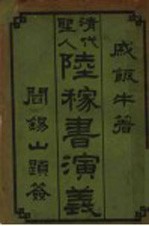 戚飯牛著
清代
聖人
陸稼書演義
閻錫山題簽